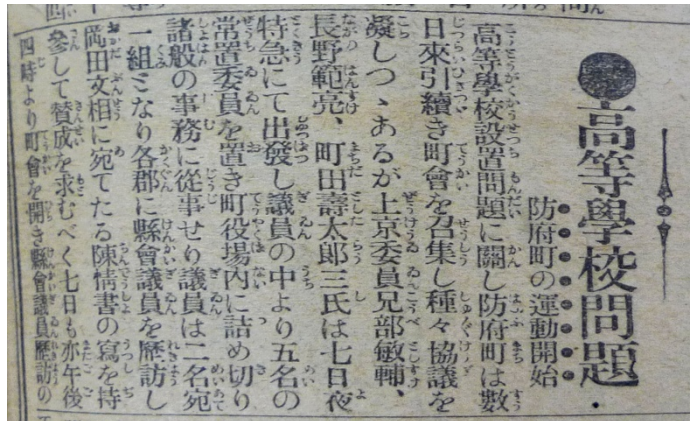 ●高等學校問題
防府町の運動開始
高等學校設置問題に關し防府町は數
日來引續き町會を召集し種々協議を
凝しつゝあるが上京委員兄部敏輔、
長野範亮、町田壽太郎三氏は七日夜
特急にて出發し議員の中より五名の
常置委員を置き町役場內に詰め切り
諸般の事務に從事せり議員は二名宛
一組ミなり各郡に縣會議員を歷訪し
岡田文相に宛てたる陳情書の寫を持
參して賛成を求むべく七日も亦午後
四時より町會を開き縣會議員歷訪の